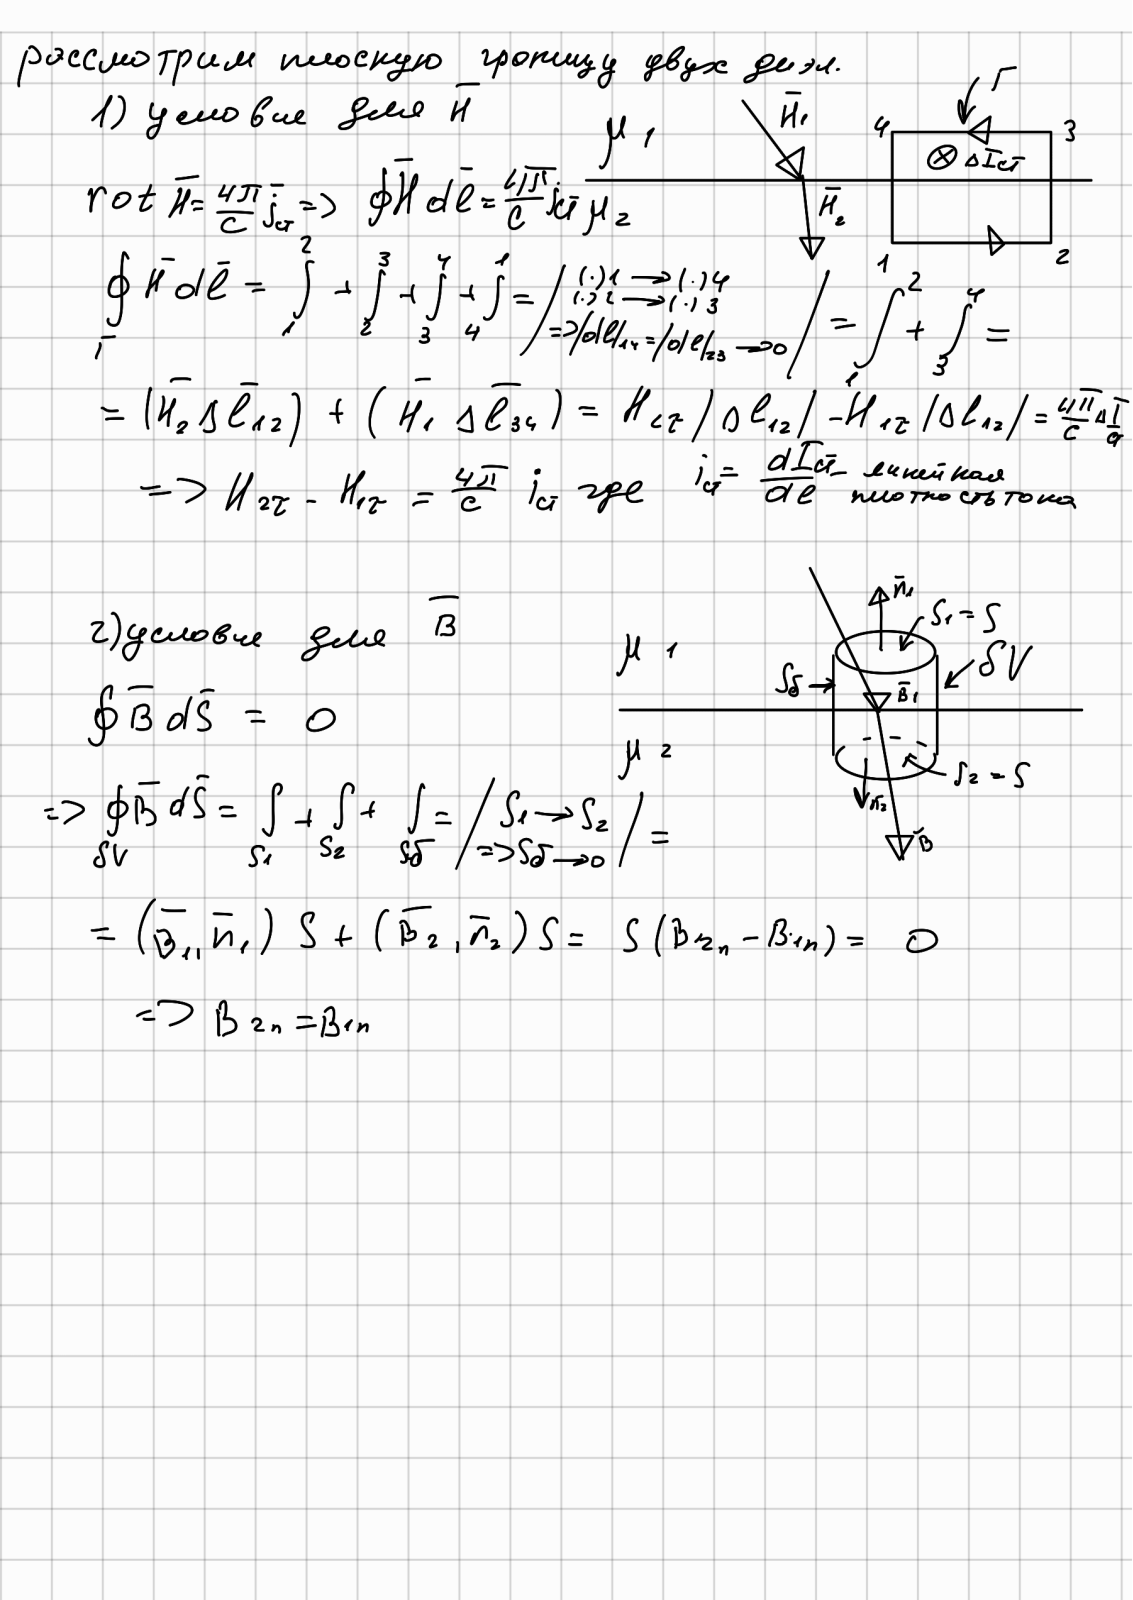 рассмотрим плоскую границу двух диэл.
1) условие для H̅
rot H̅ = 4π/c j̅ст => ∮H̅ dl̅ = 4π/c Iст
μ1
μ2
H̅1
H̅2
Г
4 3
⊗ ΔIст
1 2
∮Г H̅ dl̅ = ∫₁² + ∫₂³ + ∫₃⁴ + ∫₄¹ = / (·)1 → (·)4
(·)2 → (·)3
=> |dl|14 = |dl|23 → 0 / = ∫₁² + ∫₃⁴ =
= (H̅2 Δl̅12) + (H̅1 Δl̅34) = H2τ |Δl12| - H1τ |Δl12| = 4π/c ΔIст
=> H2τ - H1τ = 4π/c iст где iст = dIст/dl - линейная
плотность тока
2) условие для B̅
μ1
μ2
n̅1
S1 = S
δV
Sδ
B̅1
S2 = S
n̅2
B̅
∮B̅ dS̅ = 0
=> ∮δV B̅ dS̅ = ∫S1 + ∫S2 + ∫Sδ = / S1 → S2
=> Sδ → 0 / =
= (B̅1, n̅1) S + (B̅2, n̅2) S = S (B2n - B1n) = 0
=> B2n = B1n